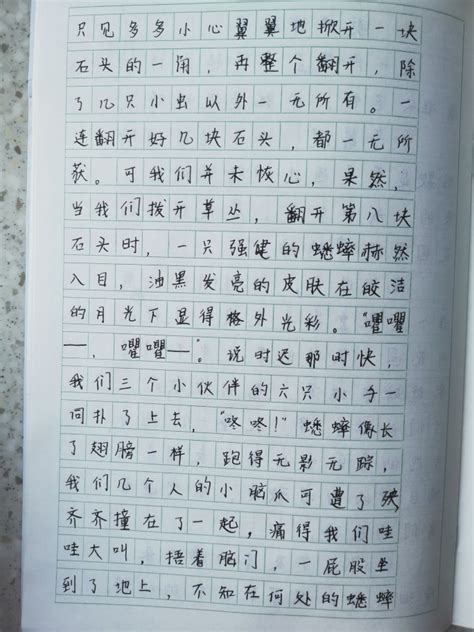 只见多多小心翼翼地掀开一块
石头的一角，再整个翻开，除
了几只小虫以外一无所有。一
连翻开好几块石头，都一无所
获。可我们并未灰心，果然，
当我们拨开草丛，翻开第八块
石头时，一只强健的蟋蟀赫然
入目，油黑发亮的皮肤在皎洁
的月光下显得格外光彩。“嚁嚁
—，嚁嚁—”。说时迟那时快，
我们三个小伙伴的六只小手一
同扑了上去，“咚咚！”蟋蟀像长
了翅膀一样，跑得无影无踪，
我们几个人的小脑瓜可遭了殃
齐齐撞在了一起，痛得我们哇
哇大叫，捂着脑门，一屁股坐
到了地上，不知在何处的蟋蟀